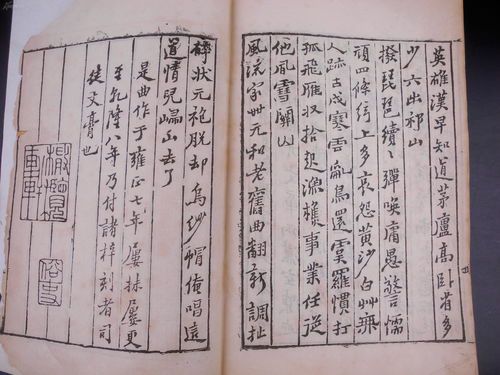 英雄漢早知道茅廬高卧省多
少六出祁山
撥琵琶續〻彈喚庸愚警懦
頑四條絃上多哀怨黃沙白艸無
人跡古戍寒雲亂鳥還虞羅慣打
孤飛雁収拾起漁樵事業任從
他風雪關山
風流家世元和老舊曲翻新調扯
碎狀元袍脫却烏紗帽俺唱這
道情兒歸山去了
是曲作于雍正七年屢抹屢更
至乾隆八年乃付諸梓刻者司
徒文膏也
橄欖軒
俗吏